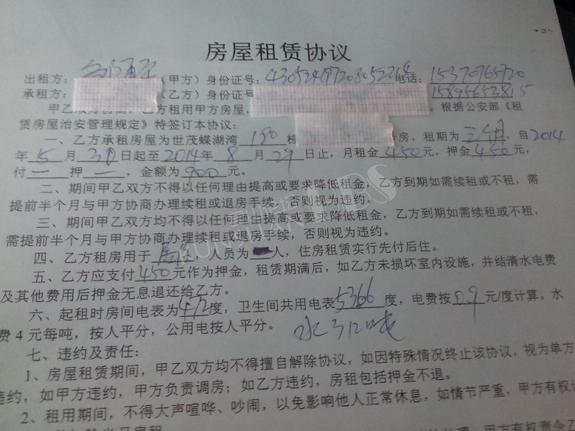 房屋租赁协议
出租方： （甲方）身份证号： 电话：15370765720
承租方： （乙方）身份证号 15895653815
甲乙 ，乙方租用甲方房屋， ，根据公安部《租
赁房屋治安管理规定》特签订本协议：
一、乙方承租房屋为世茂蝶湖湾 190 栋 房，租期为三个月，自2014
年5月30日起至2014年8月29日止，月租金450元，押金450元，
付一押一，金额为900元。
二、期间甲乙双方不得以任何理由提高或要求降低租金，乙方到期如需续租或不租，需
提前半个月与甲方协商办理续租或退房手续，否则视为违约。
三、期间甲乙双方均不得以任何理由提高或要求降低租金，乙方到期如需续租或不租，
需提前半个月与甲方协商办理续租或退房手续，否则视为违约。
四、乙方租房用于居住，人员为一人，住房租赁实行先付后住。
五、乙方应支付450元作为押金，租赁期满后，如乙方未损坏室内设施，并结清水电费
及其他费用后押金无息退还给乙方。
六、起租时房间电表为 度，卫生间共用电表5366度，电费按0.9元/度计算。水
费4元每吨，按人平分，公用电按人平分。
七、违约及责任：
1、房屋租赁期间，甲乙双方均不得擅自解除协议，如因特殊情况终止该协议，视为单方
违约，如甲方违约，甲方负责调房；如乙方违约，房租包括押金不退。
2、租用期间，不得大声喧哗、吵闹，以免影响他人正常休息，如情节严重，甲方有权